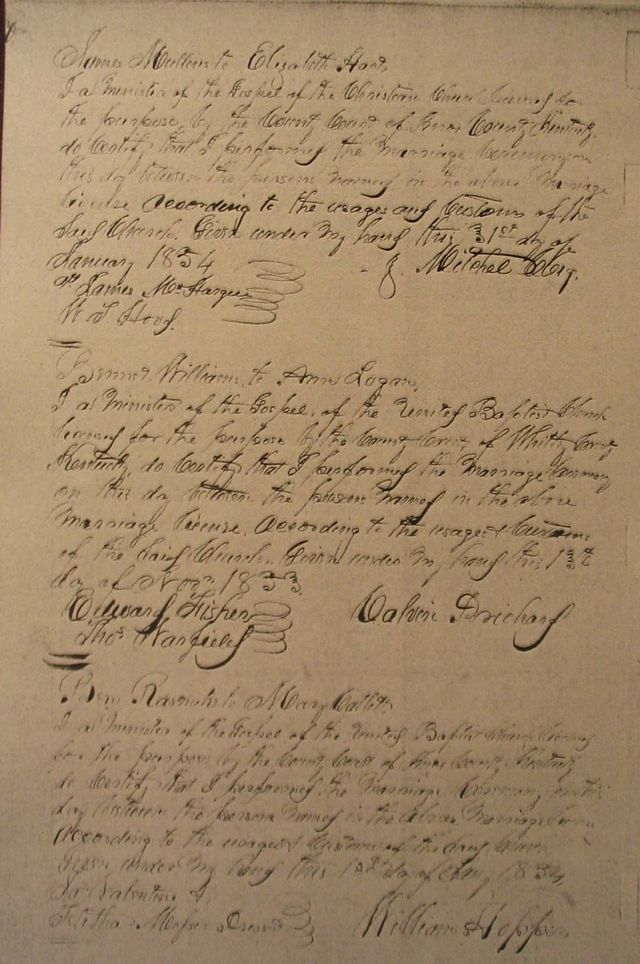 James Mullins to Elizabeth Hart,
I a Minister of the Gospel of the Christian Church licensed for
the purpose by the County Court of Knox County Kentucky
do Certify that I performed the Marriage Ceremony on
this day between the persons named in the above Marriage
license according to the usages and Customs of the
said Church. Given under my hand this 31st day of
January 1834
J. Mitchel Clerg.
James McHargue
W
Williams, to Ann Logan,
I a Minister of the Gospel, of the United Baptist Church
licensed for the purpose by the County Court of Whitly County
Kentucky, do Certify that I performed the Marriage Ceremony
on this day between the persons named in the above
Marriage license, according to the usages & Customs
of the said Church. Given under my hand this
day of Novr 1833
Edward Fisher
Thos Warfield
Calvin
Ben to Mary
I a Minister of the Gospel of the United Baptist Church licensed
for the purpose by the County Court of Knox County Kentucky
do Certify that I performed the Marriage Ceremony on this
day between the persons named in the above Marriage license
According to the usages & Customs of the said Church
Given under my hand this 1st day of 1834
Valentine &
William Hopper